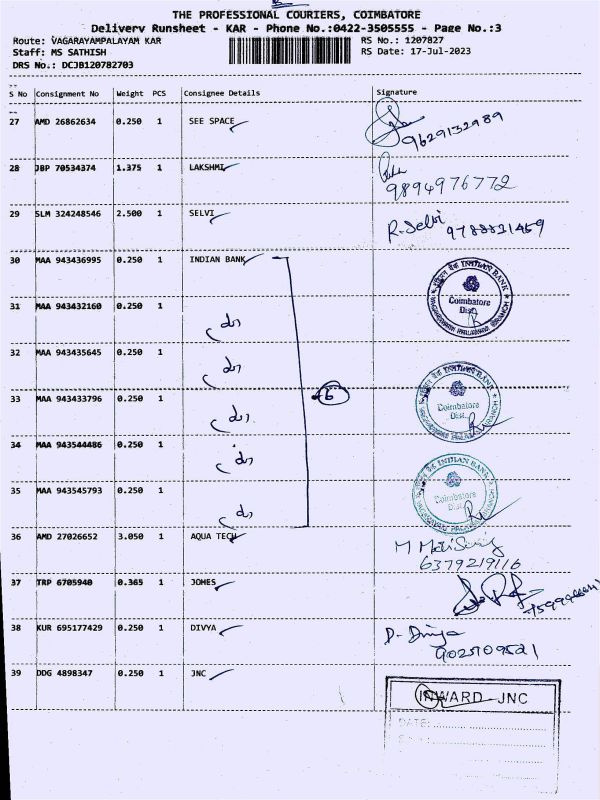 THE PROFESSIONAL COURIERS, COIMBATORE
Delivery Runsheet - KAR - Phone No.:0422-3505555 - Page No.:3
Route: VAGARAYAMPALAYAM KAR
RS No.: 1207827
Staff: MS SATHISH
RS Date: 17-Jul-2023
DRS No.: DCJB120782703
S No Consignment No Weight PCS Consignee Details Signature
27 AMD 26862634 0.250 1 SEE SPACE
9629132989
28 JBP 70534374 1.375 1 LAKSHMI
9894976772
29 SLM 324248546 2.500 1 SELVI R. Selvi 9788821459
30 MAA 943436995 0.250 1 INDIAN BANK
INDIAN BANK
Coimbatore
Dist.
31 MAA 943432160 0.250 1
32 MAA 943435645 0.250 1
INDIAN BANK
Coimbatore
Dist.
33 MAA 943433796 0.250 1
6
34 MAA 943544486 0.250 1
INDIAN BANK
Coimbatore
Dist.
35 MAA 943545793 0.250 1
36 AMD 27026652 3.050 1 AQUA TECH
6379219116
37 TRP 6705940 0.365 1 JOMES
38 KUR 695177429 0.250 1 DIVYA D. Divya
9025709521
39 DDG 4898347 0.250 1 JNC
INWARD - JNC
DATE: